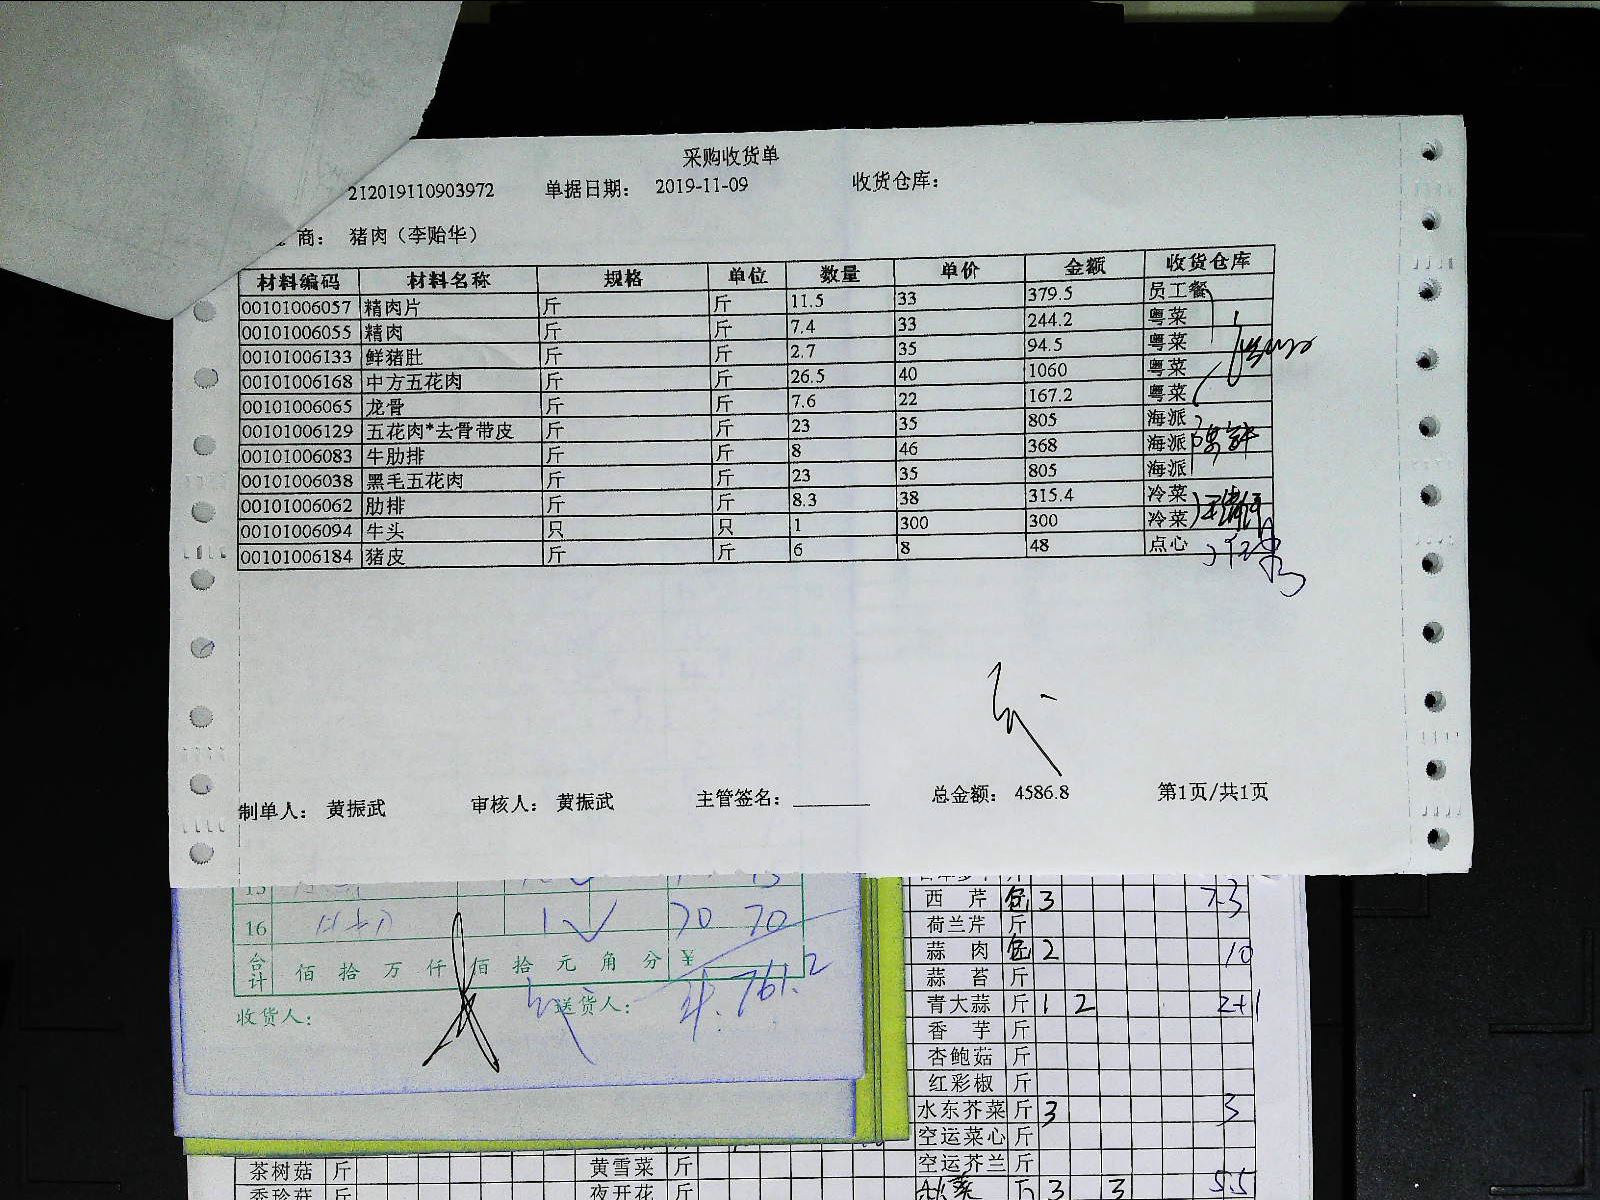 采购收货单
212019110903972 单据日期： 2019-11-09 收货仓库：
商： 猪肉（李贻华）
材料编码 材料名称 规格 单位 数量 单价 金额 收货仓库
00101006057 精肉片 斤 斤 11.5 33 379.5 员工餐
00101006055 精肉 斤 斤 7.4 33 244.2 粤菜
00101006133 鲜猪肚 斤 斤 2.7 35 94.5 粤菜
00101006168 中方五花肉 斤 斤 26.5 40 1060 粤菜
00101006065 龙骨 斤 斤 7.6 22 167.2 粤菜
00101006129 五花肉*去骨带皮 斤 斤 23 35 805 海派
00101006083 牛肋排 斤 斤 8 46 368 海派
00101006038 黑毛五花肉 斤 斤 23 35 805 海派
00101006062 肋排 斤 斤 8.3 38 315.4 冷菜
00101006094 牛头 只 只 1 300 300 冷菜
00101006184 猪皮 斤 斤 6 8 48 点心
制单人： 黄振武 审核人： 黄振武 主管签名： 总金额： 4586.8 第1页/共1页
16 1 70 70
合计 佰 拾 万 仟 佰 拾 元 角 分 ¥
收货人： 送货人：
西芹 3 7.3
荷兰芹 斤
蒜肉 2 10
蒜苔 斤
青大蒜 斤 1 2 2+1
香芋 斤
杏鲍菇 斤
红彩椒 斤
水东芥菜 斤 3 3
空运菜心 斤
茶树菇 斤 黄雪菜 斤 空运芥兰 斤
秀珍菇 斤 夜开花 斤 3 3 5.5